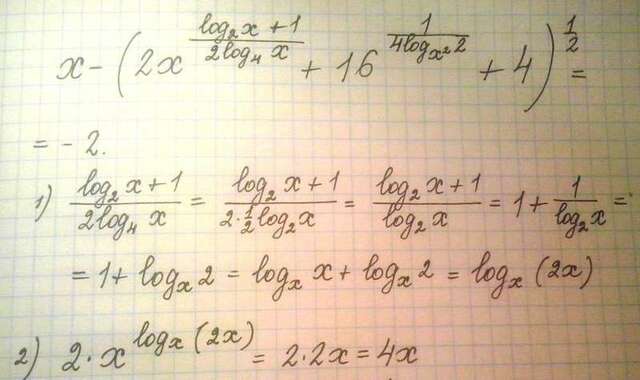 x - (2x^((log₂x + 1)/(2log₄x)) + 16^(1/(4log_{x²}2)) + 4)^(1/2) =
= - 2.
1) (log₂x + 1)/(2log₄x) = (log₂x + 1)/(2·(1/2)log₂x) = (log₂x + 1)/(log₂x) = 1 + 1/(log₂x) =
= 1 + logₓ2 = logₓx + logₓ2 = logₓ(2x)
2) 2·x^(logₓ(2x)) = 2·2x = 4x